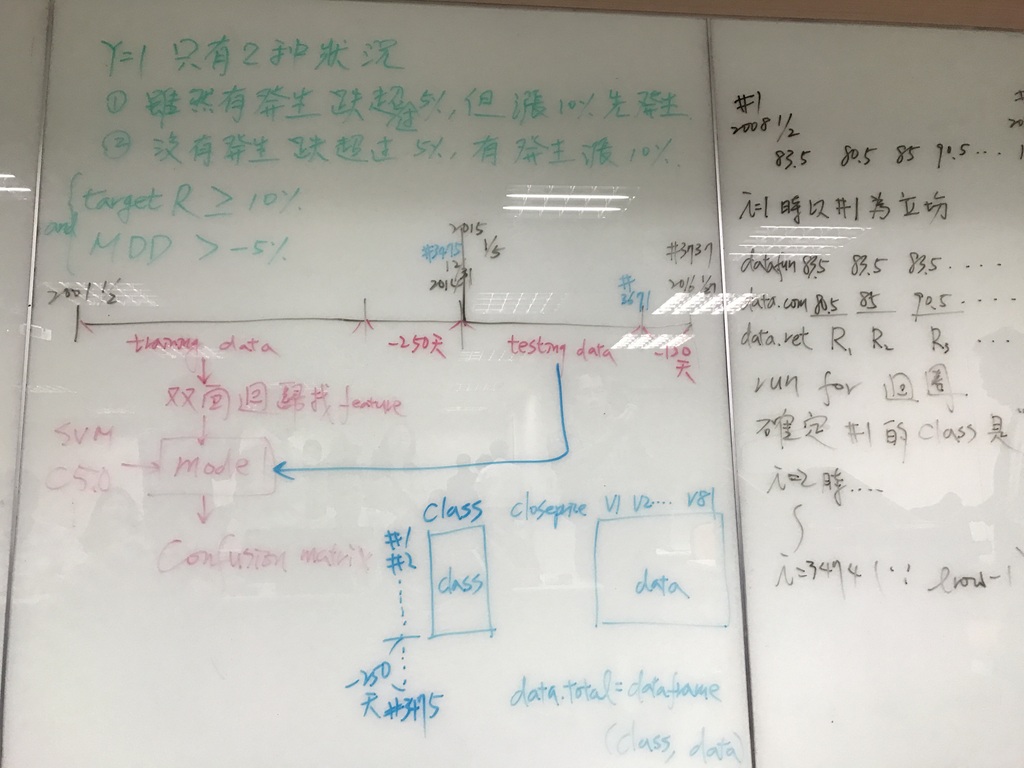 Y=1 只有2种狀況
① 雖然有發生跌超過5%, 但漲10%先發生
② 沒有發生跌超過5%, 有發生漲10%
and
target R ≥ 10%
MDD > -5%
2001 1/2
#3475
2014 12/31
2015 1/5
#3737
#
training data
-250天
testing data
-120天
双向回歸找feature
SVM
C5.0
mode
Confusion matrix
class closeprice V1 V2... V81
#1
#2
class
data
-250天
#3475
data.total = dataframe
(class, data)
#1
2008 1/2
83.5 80.5 85 90.5 ....
i=1時以#1為立場
datafun 83.5 83.5 83.5 ....
data.com 80.5 85 90.5 ....
data.ret R1 R2 R3 ...
run for 回圈
確定#1的class是
i=2時....
i=3494 (∵ lrow-1)